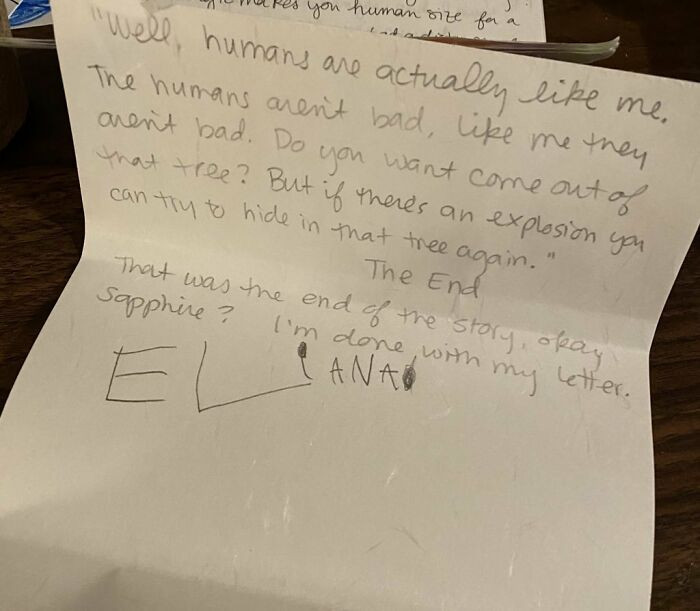 makes you human size for a
"Well, humans are actually like me.
The humans aren't bad, like me they
aren't bad. Do you want come out of
that tree? But if there's an explosion you
can try to hide in that tree again."
The End
That was the end of the story, okay
Sapphire? I'm done with my letter.
ELIANA